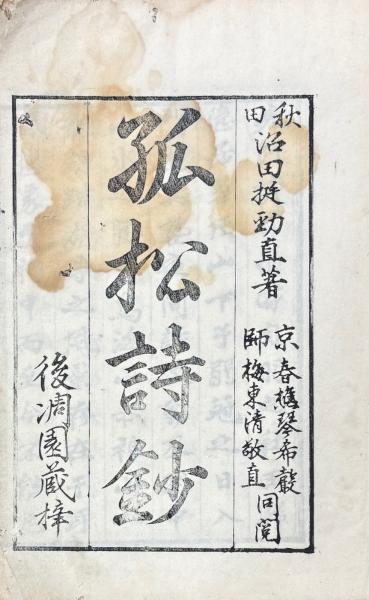 秋田 沼田挺勁直著
京師 春樵琴希聲 梅東清敬直 同閲
孤松詩鈔
後凋園蔵梓